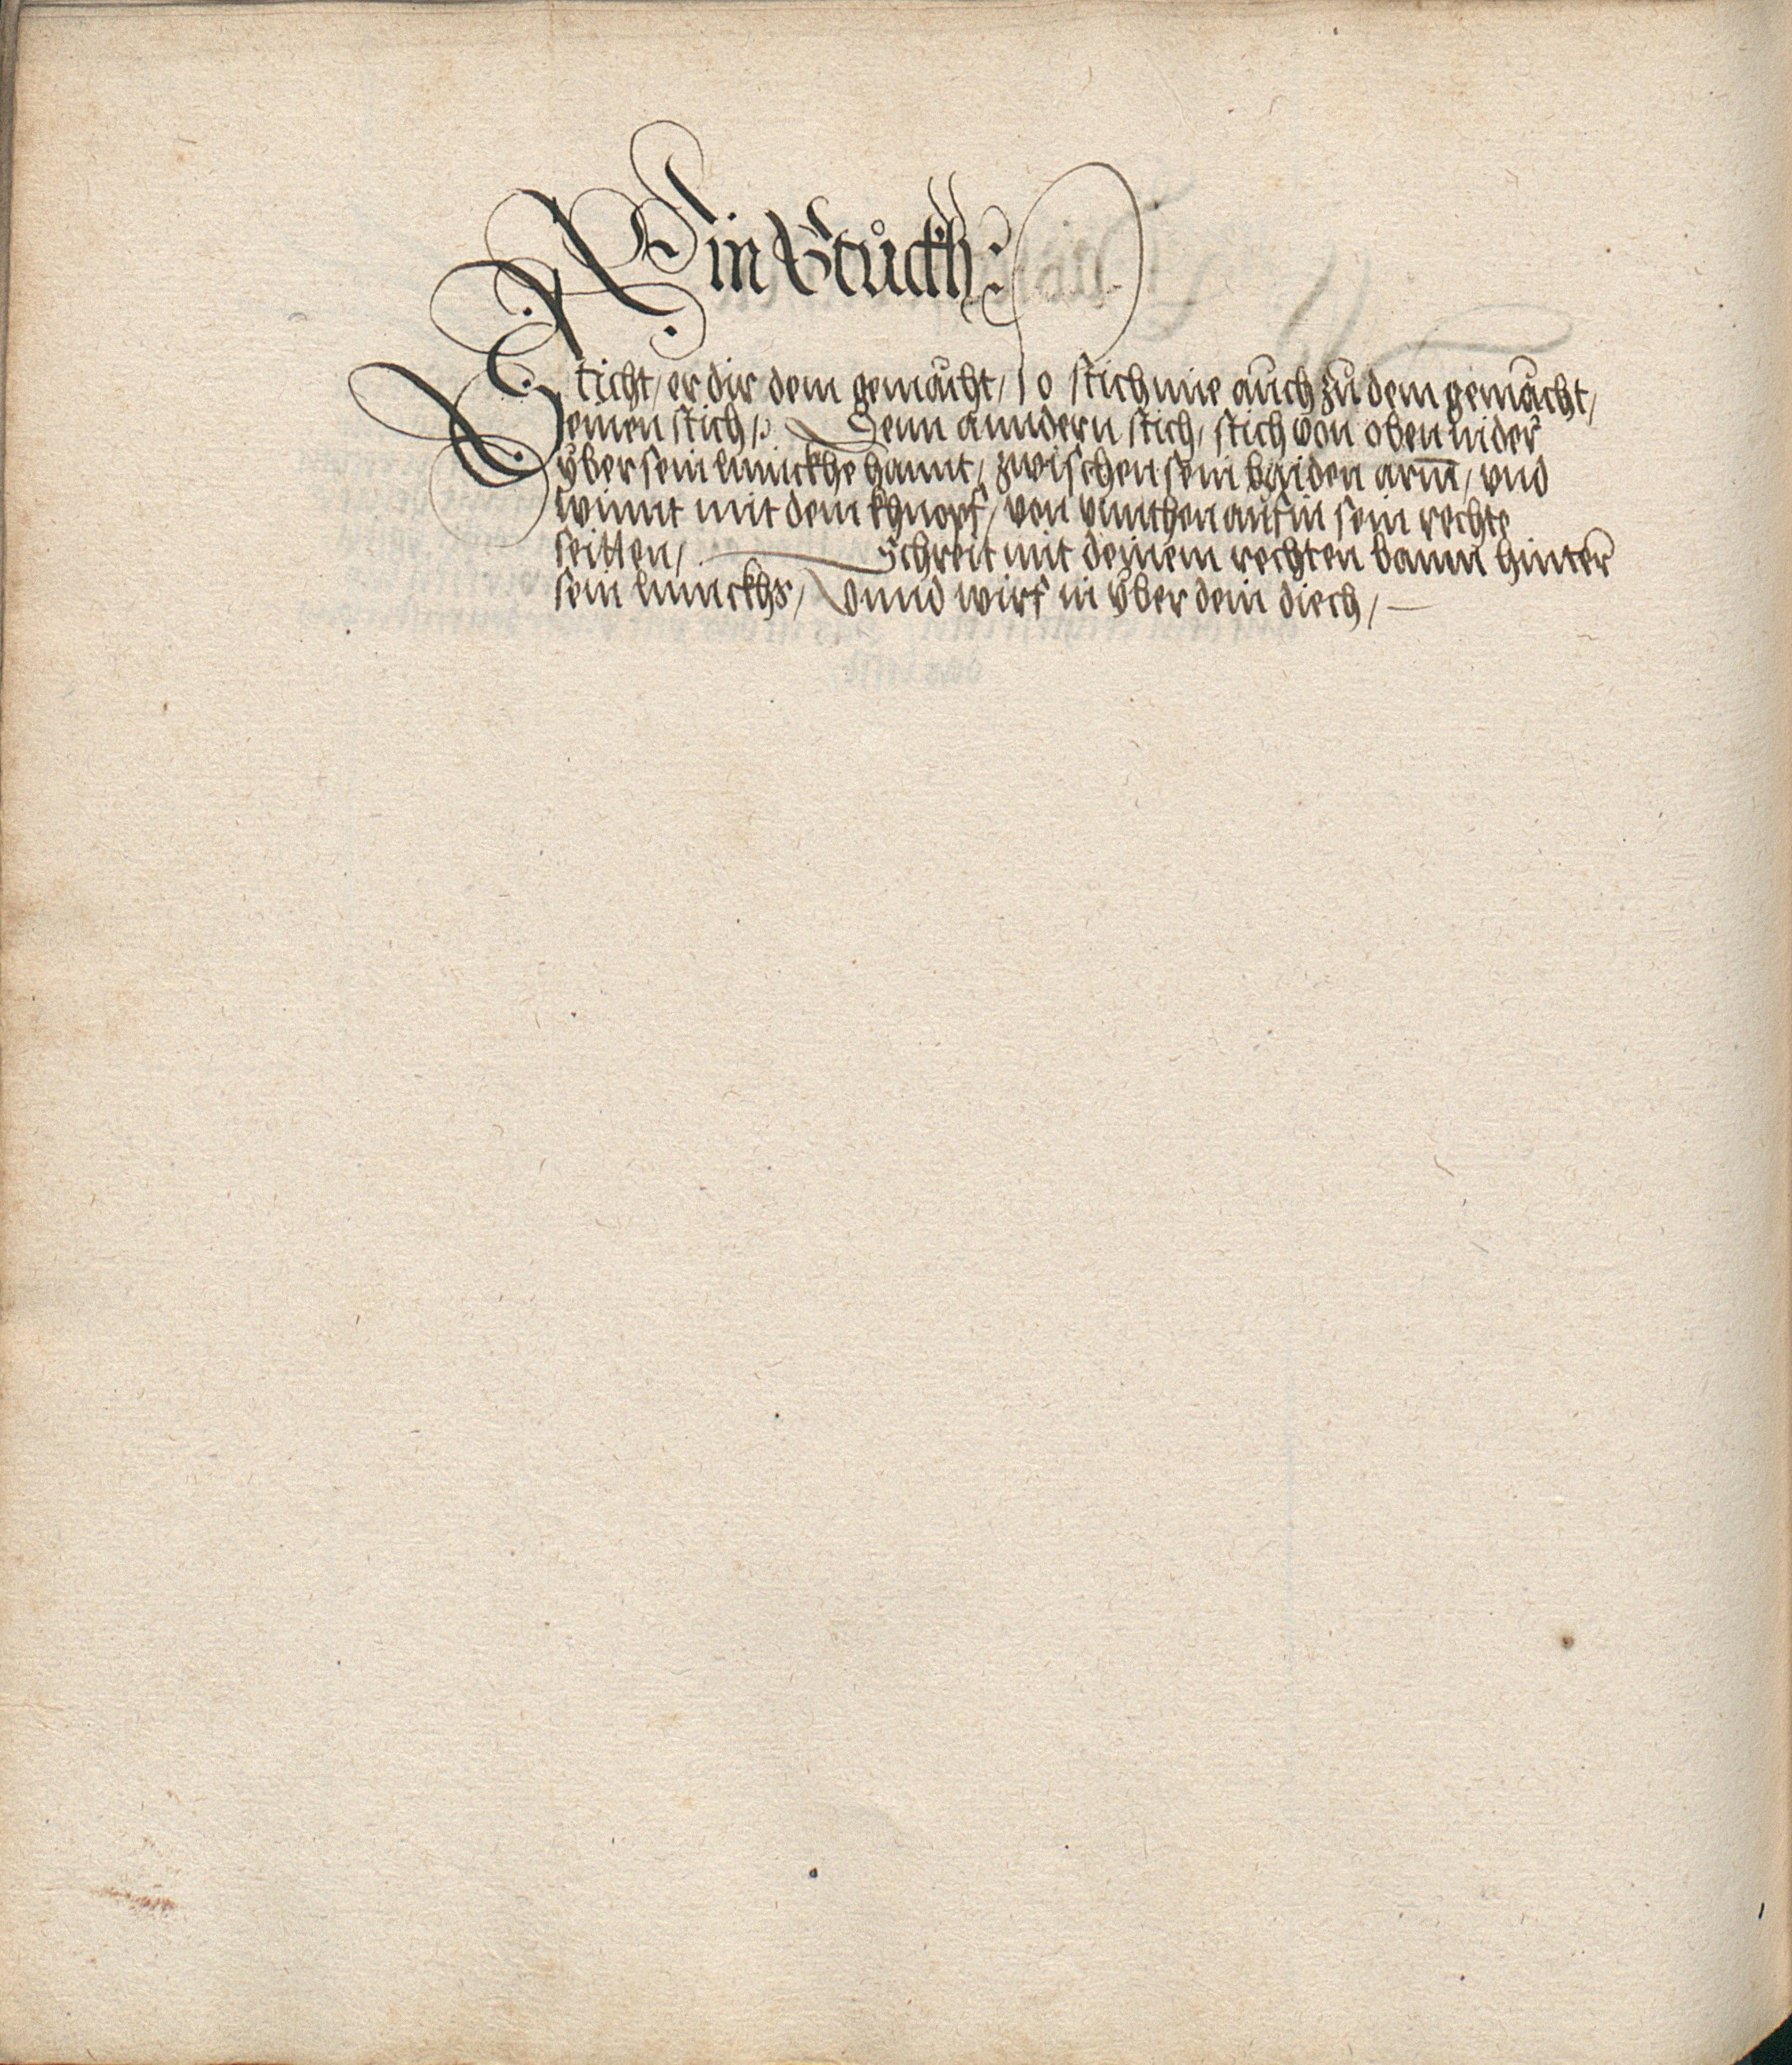 Ain Stückh:
Sticht/ er dir dem gemächt/ so stich nie auch zů dem gemächt/
seinen stich/ Denn anndern stich/ stich von oben nider
vber sein linnckhe hannt/ zwischen sein baiden arm̄/ vnd
winnt mit dem khnopf/ von vnnthen auf in sein rechte
seitten/ Schreit mit deinem rechten bainn hinter
sein linnckhs/ Vnnd wirf in vber dein diech/